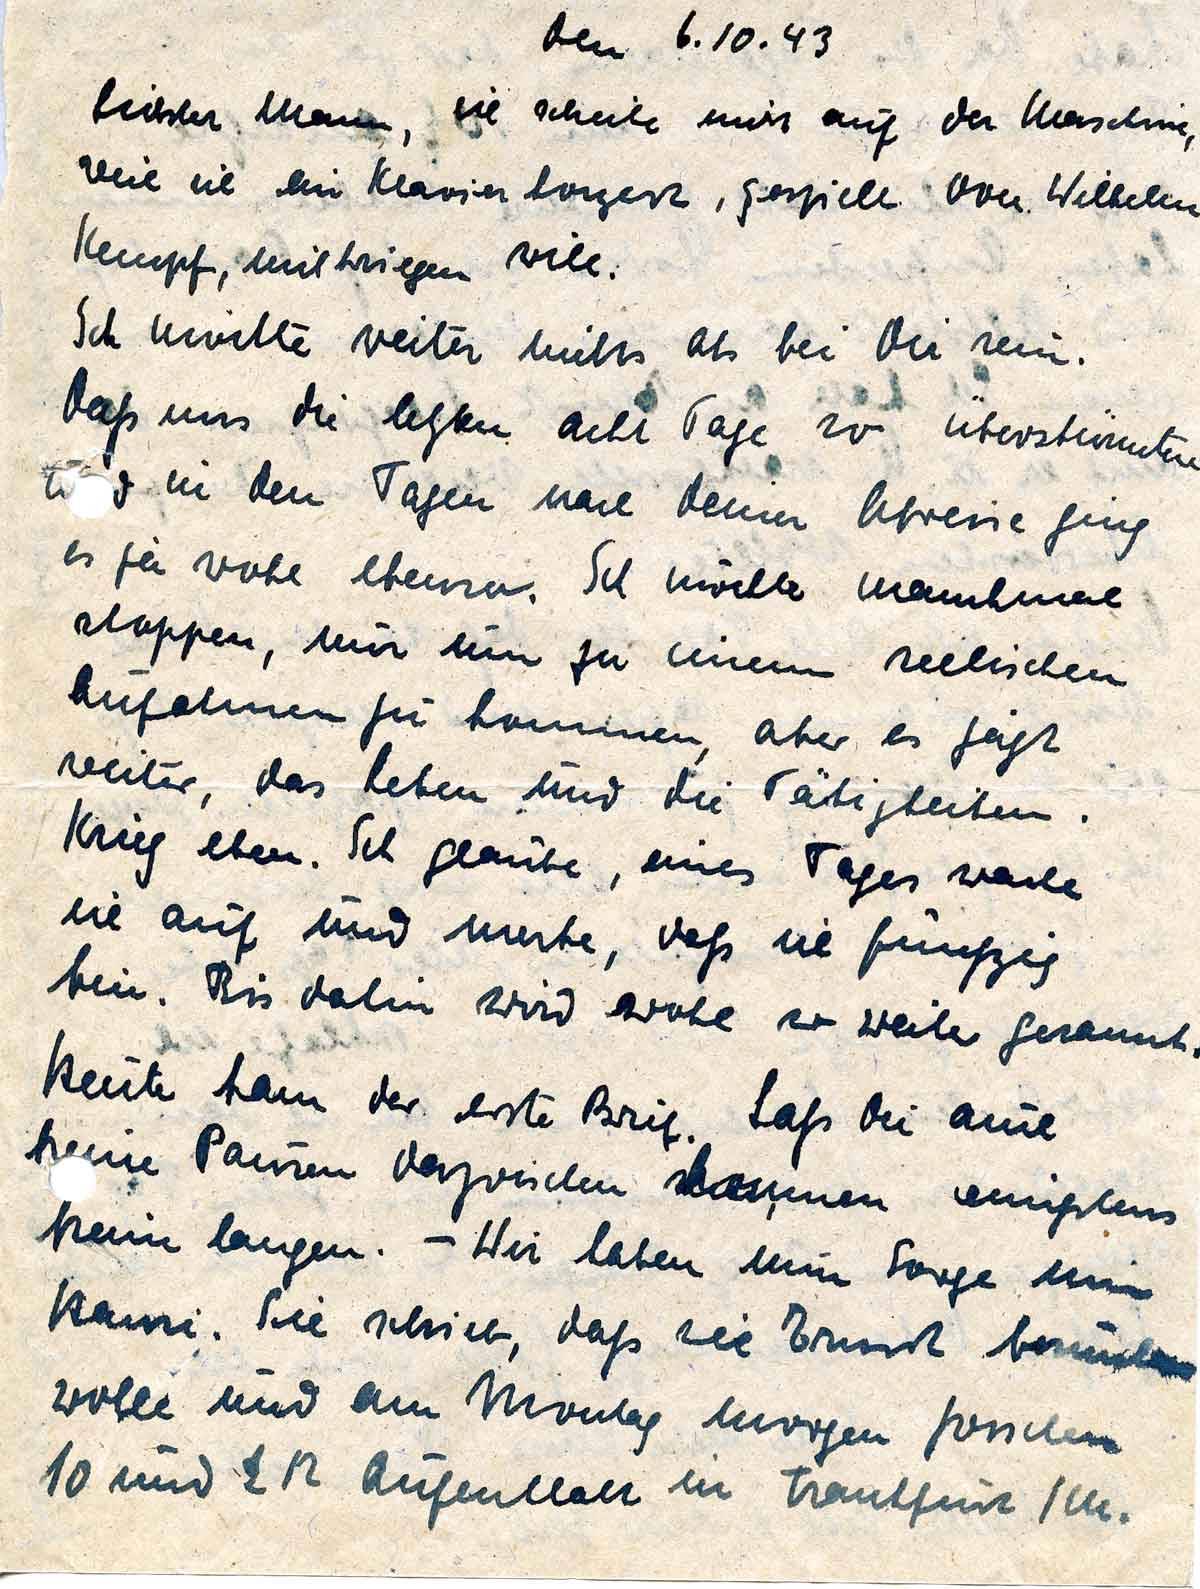 den 6.10.43
Liebster Mann, ich schreibe nicht auf der Maschine,
weil ich ein Klavierkonzert, gespielt von Wilhelm
Kempf, mitkriegen will.
Ich möchte weiter nichts als bei Dir sein.
Daß uns die letzten acht Tage so überstürmten
und in den Tagen nach Deiner Abreise ging
es ja wohl ebenso. Ich möchte manchmal
stoppen, nur um zu einem seelischen
Aufatmen zu kommen, aber es jagt
weiter, das Leben und die Tätigkeiten.
Krieg eben. Ich glaube, eines Tages wache
ich auf und merke, daß ich fünfzig
bin. Bis dahin wird wohl so weiter gerannt.
Heute kam der erste Brief. Laß Dir auch
keine Pausen dazwischen kommen, wenigstens
keine langen. – Wir haben nun Sorge um
Hansi. Sie schrieb, daß sie Ernst besuchen
wolle und am Montag morgen zwischen
10 und 12 Aufenthalt in Frankfurt / M.